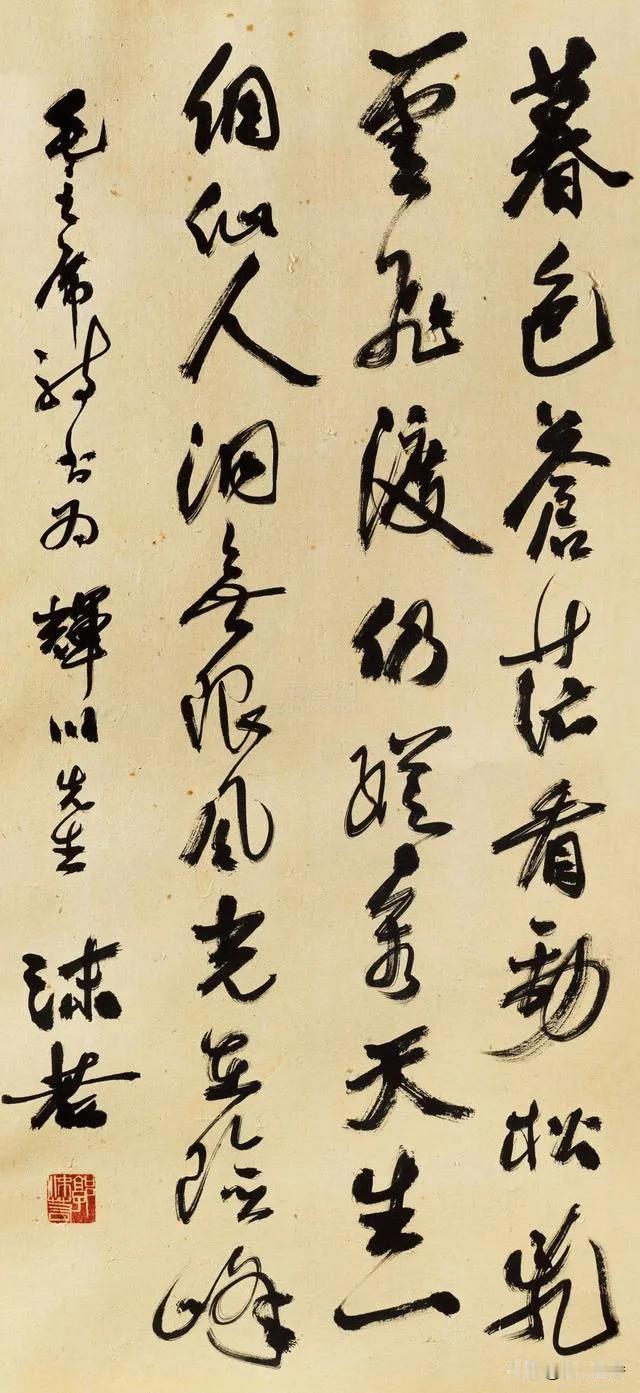 暮色蒼茫看勁松亂
雲飛渡仍從容天生一
個仙人洞無限風光在險峰
毛主席詩書為輝川先生 沫若
郭沫若